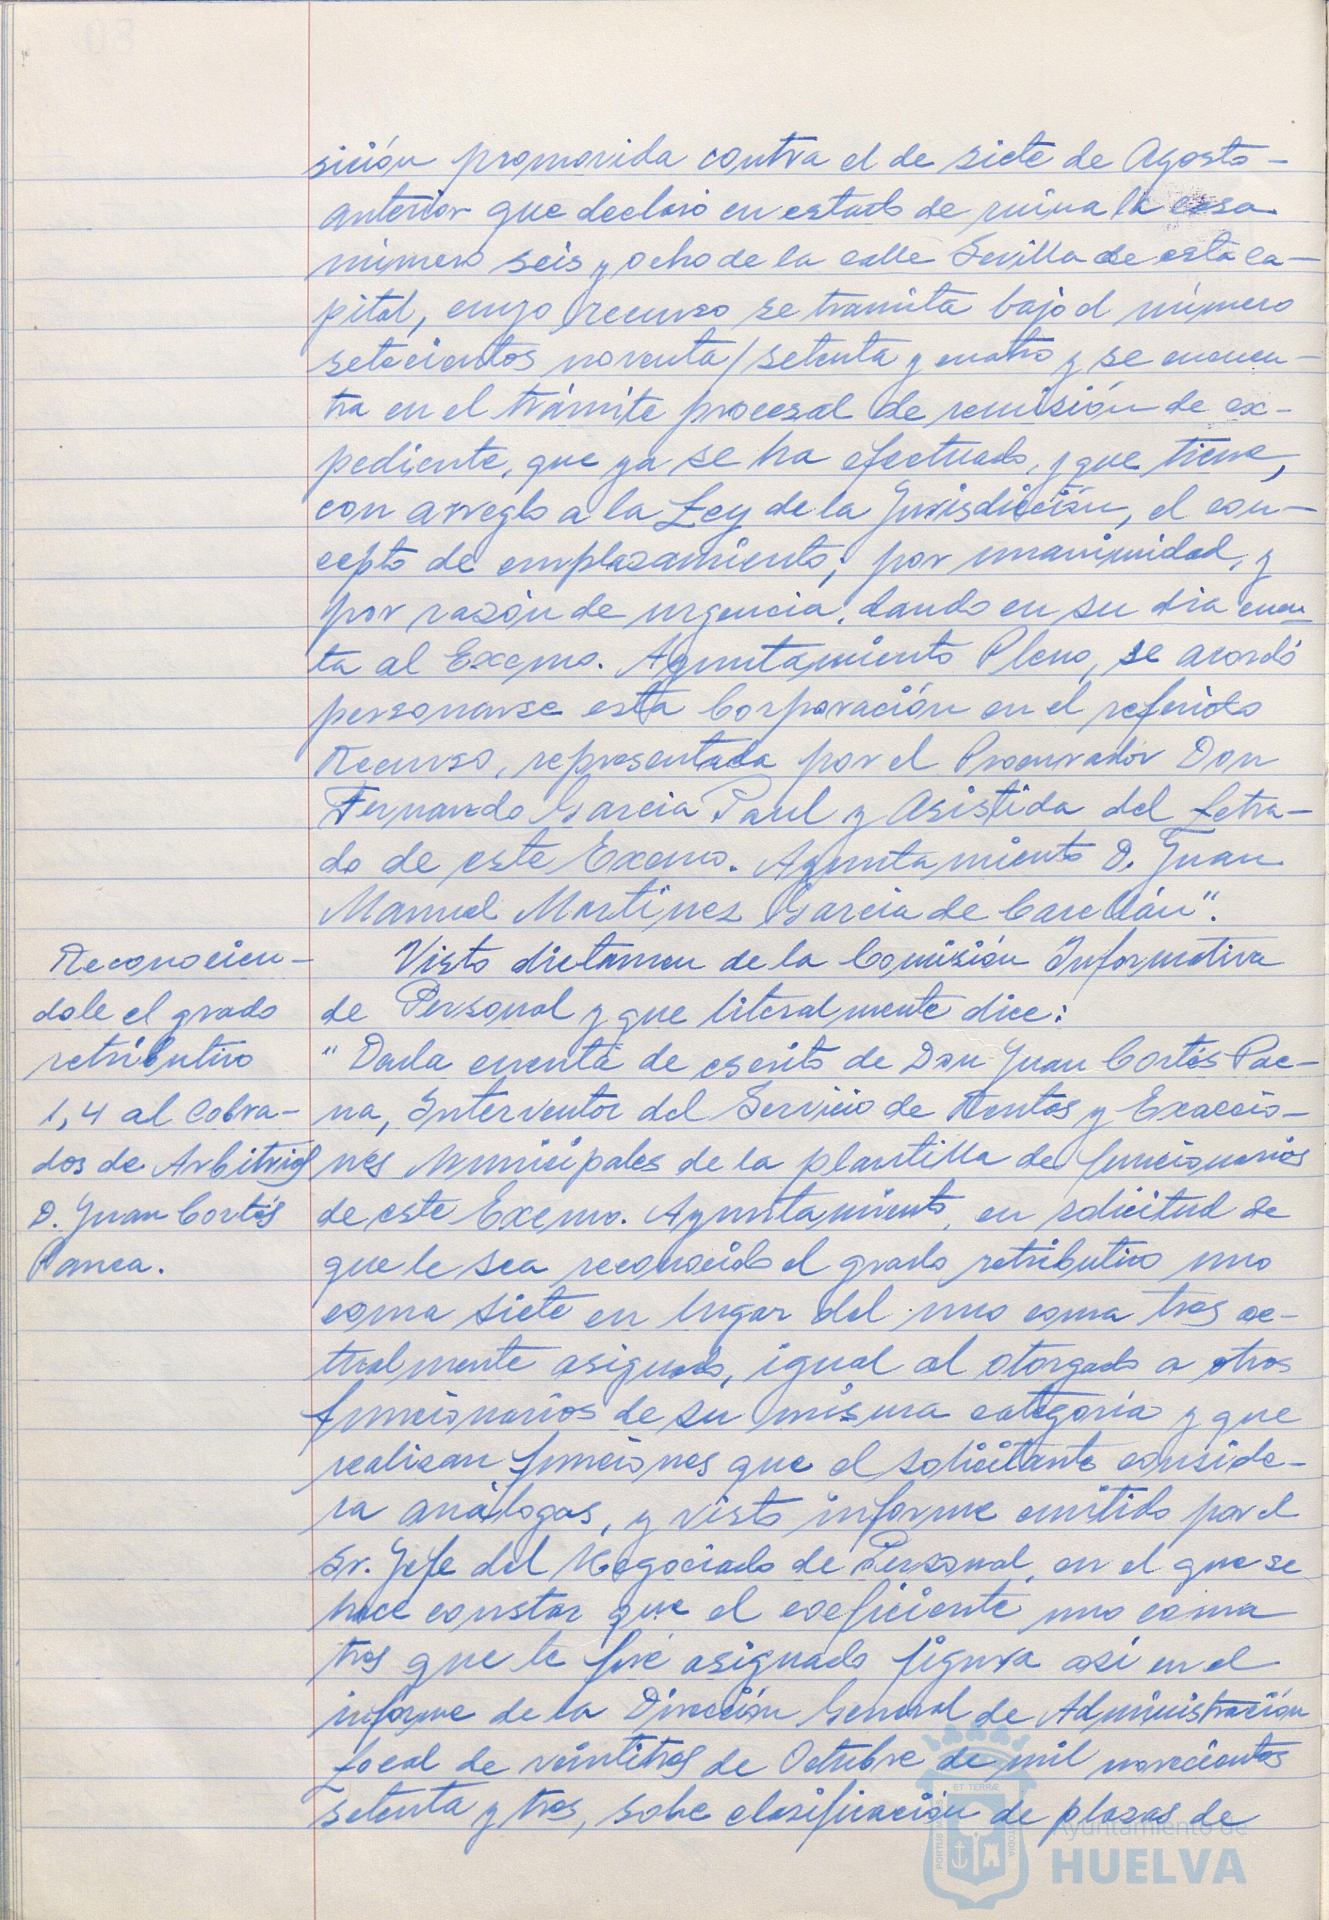 sición promovida contra el de siete de Agosto-
anterior que declaró en estado de ruina la casa
número seis y ocho de la calle Sevilla de esta ca-
pital, cuyo recurso se tramita bajo el número
setecientos noventa/setenta y cuatro y se encuen-
tra en el trámite procesal de remisión de ex-
pediente, que ya se ha efectuado, y que tiene,
con arreglo a la Ley de la Jurisdicción, el con-
cepto de emplazamiento; por unanimidad, y
por razón de urgencia, dando en su dia cuen-
ta al Excmo. Ayuntamiento Pleno, se acordó
personarse esta Corporación en el referido
Recurso, representada por el Procurador Don
Fernando Garcia Paul y Asistida del Letra-
do de este Excmo. Ayuntamiento D. Juan
Manuel Martinez Garcia de Carellán".
Reconocien-
dole el grado
retributivo
1,4 al Cobra-
dos de Arbitrios
D. Juan Cortés
Panea.
Visto dictamen de la Comisión Informativa
de Personal y que literalmente dice:
"Dada cuenta de escrito de Don Juan Cortés Pae-
na, Interventor del Servicio de Rentas y Exaccio-
nes Municipales de la plantilla de funcionarios
de este Excmo. Ayuntamiento, en solicitud de
que le sea reconocido el grado retributivo uno
coma siete en lugar del uno coma tres ac-
tualmente asignado, igual al otorgado a otros
funcionarios de su misma categoría y que
realizan funciones que el solicitante conside-
ra análogas, y visto informe emitido por el
Sr. Jefe del Negociado de Personal, en el que se
hace constar que el coeficiente uno coma
tres que le fué asignado figura así en el
informe de la Dirección General de Administración
Local de veintitres de Octubre de mil novecientos
setenta y tres, sobre clasificación de plazas de
ET TERRÆ
PORTUS
CUSTODIA
Ayuntamiento de
HUELVA